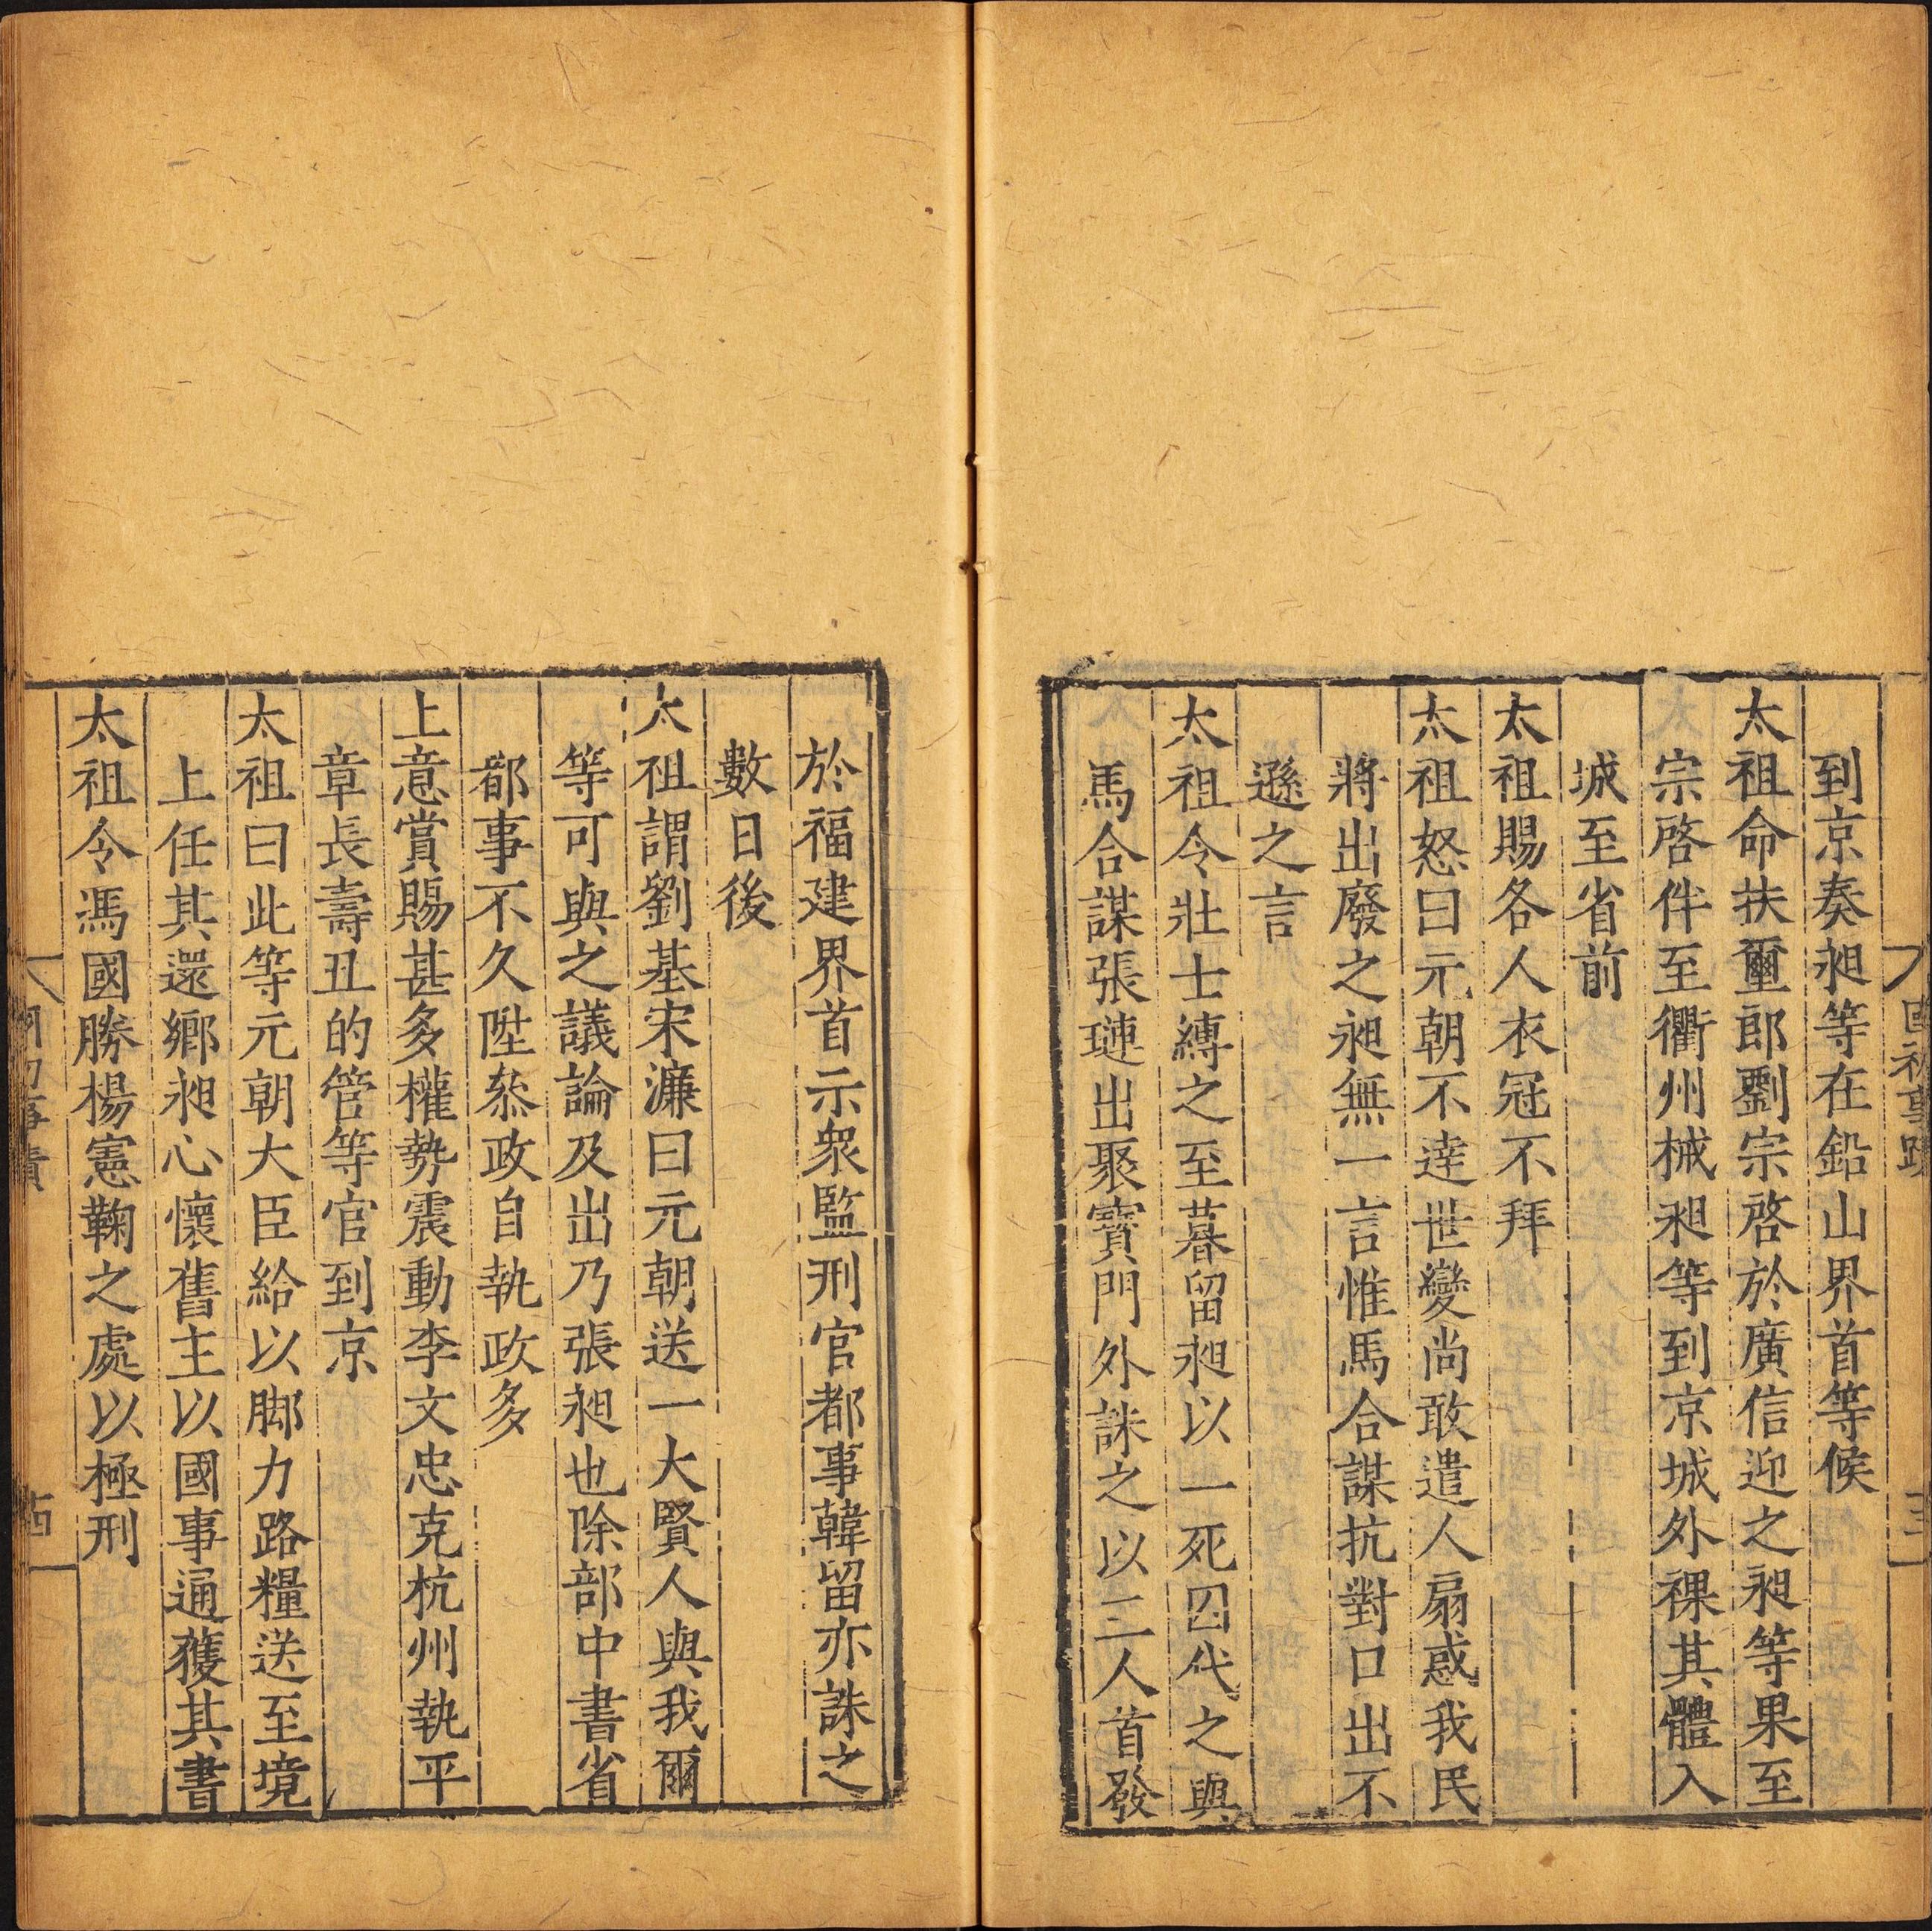 到京奏昶等在鉛山界首等候
太祖命扶爾郎劉宗啓於廣信迎之昶等果至
宗啓伴至衢州械昶等到京城外裸其體入
城至省前
太祖賜各人衣冠不拜
太祖怒曰元朝不達世變尚敢遣人扇惑我民
將出廢之昶無一言惟馬合謀抗對口出不
遜之言
太祖令壯士縛之至暮留昶以一死囚代之與
馬合謀張璉出聚寶門外誅之以三人首發
於福建界首示衆監刑官都事韓留亦誅之
數日後
太祖謂劉基宋濂曰元朝送一大賢人與我爾
等可與之議論及出乃張昶也除部中書省
都事不久陞叅政自執政多
上意賞賜甚多權勢震動李文忠克杭州執平
章長壽丑的管等官到京
太祖曰此等元朝大臣給以脚力路糧送至境
上任其還鄉昶心懷舊主以國事通獲其書
太祖令馮國勝楊憲鞠之處以極刑